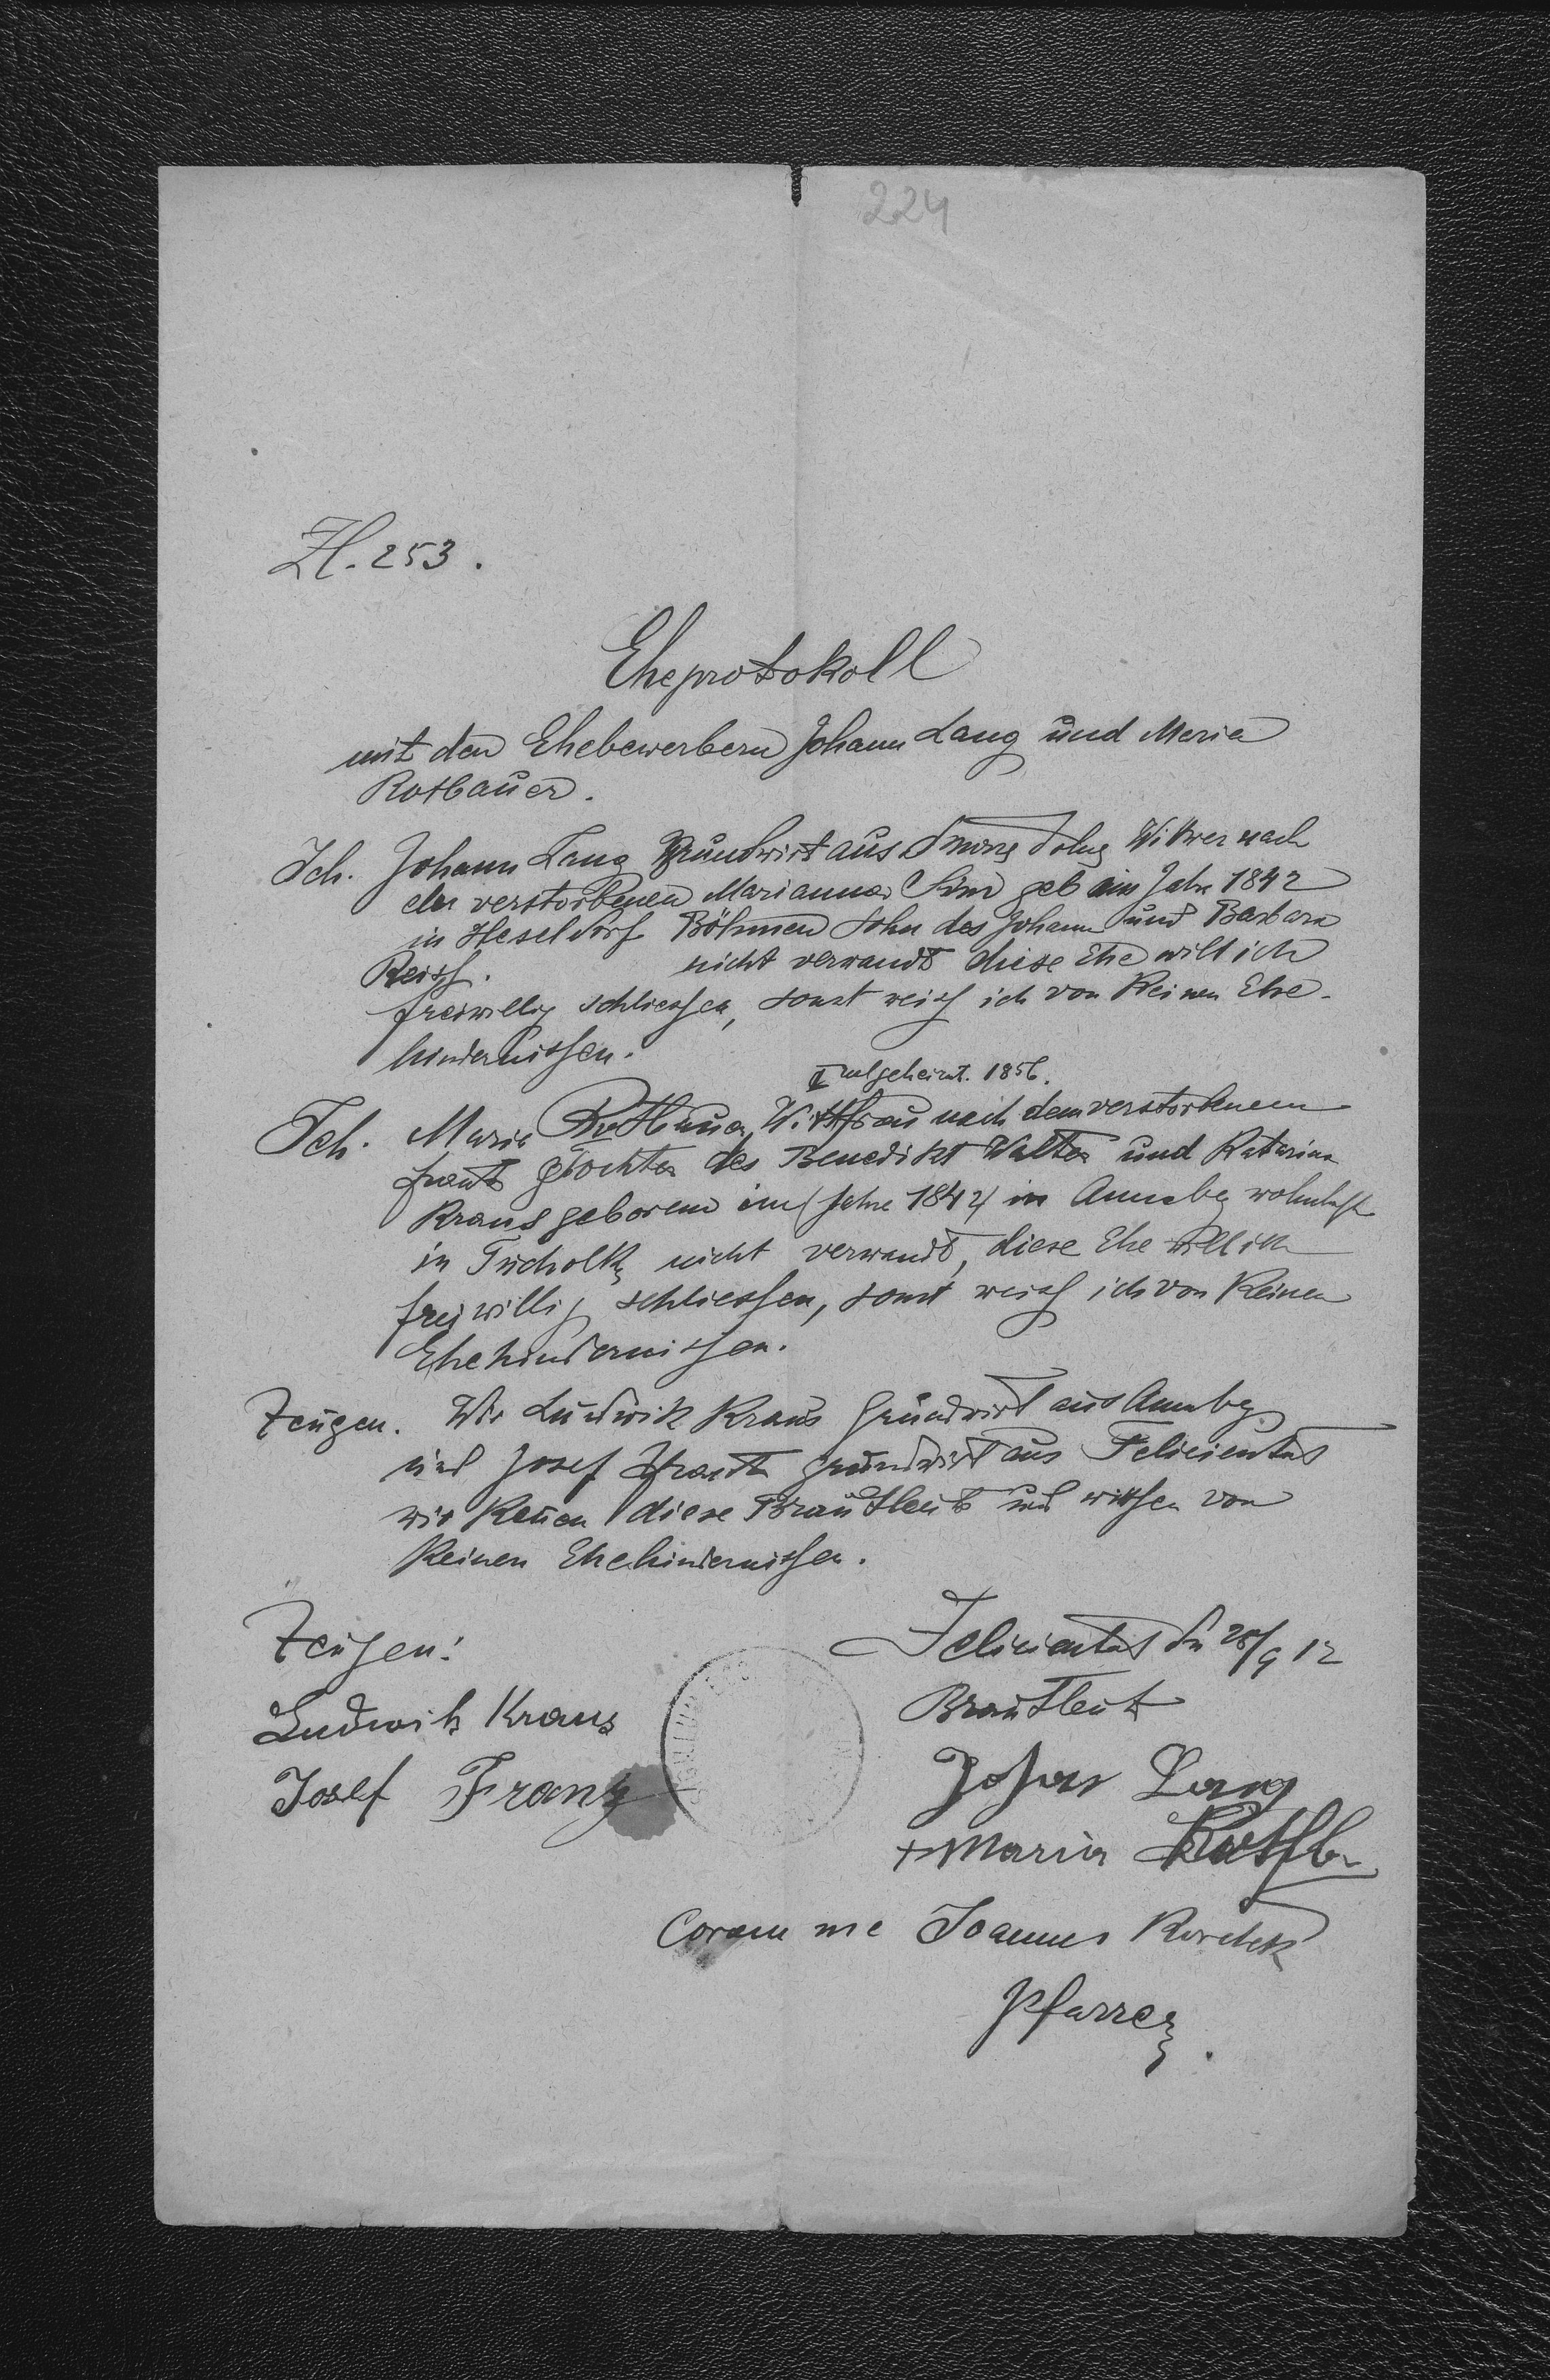 224
Zl. 253.
Eheprotokoll
mit den Ehebewerbern Johann Lang und Maria
Rotbauer.
Ich. Johann Lang Grundwirt aus Smorze Dolne Witwer nach
der verstorbenen Marianna geb im Jahre 1842
in Heseldorf Böhmen Sohn des Johann und Barbara
Reisz. nicht verwandt diese Ehe will ich
freiwillig schliessen, sonst weiss ich von Keinen Ehe-
hindernissen.
I mal geheirat. 1856.
Ich. Maria Rothbauer Wittfrau nach dem verstorbenen
Tochter des Benedikt Walter und Katarina
Kraus geboren im Jahre 1842 in Annabg wohnhaft
in nicht verwandt, diese Ehe will ich
freiwillig schliessen, sonst weiss ich von Keinen
Ehehindernissen.
Zeugen. Wir Ludwik Kraus Grundwirt aus Annabg
und Josef Grundwirt aus Felicienthal
wir Kenen diese Brautleute und wissen von
Keinen Ehehindernissen.
Zeugen: Felicienthal dn 28/9 12
Ludwik Kraus Brautleute
Josef Franz Johan Lang
+ Maria
Coram me Joannes
Pfarrer.